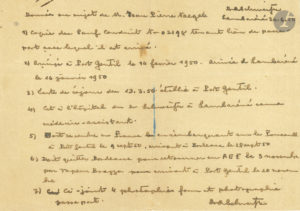 Données au sujet de M. Jean Pierre Naegele
Lambaréné
1) Copie des Sauf Conduit No 02198 tenant lieu de passe
port avec lequel il est arrivé.
2) Arrivé à Port Gentil le 14 février 1950. Arrivée à Lambaréné
le 16 janvier 1950
3) Carte de séjour des 12.3.50 établie à Port Gentil.
4) Est à l'hôpital du Dr Schweitzer à Lambaréné comme
médecin-assistant.
5) Doit rentrer en France en s'embarquant sur le
à Port Gentil le 9 sept 50, arrivant à Bordeaux le 28 sept 50
6) Doit quitter Bordeaux pour retourner en AEF le 3 novembre
par vapeur Brazza pour arriver à Port Gentil le 20 novem
bre
7) Ci-joints 4 photographies format photographie
passeport.